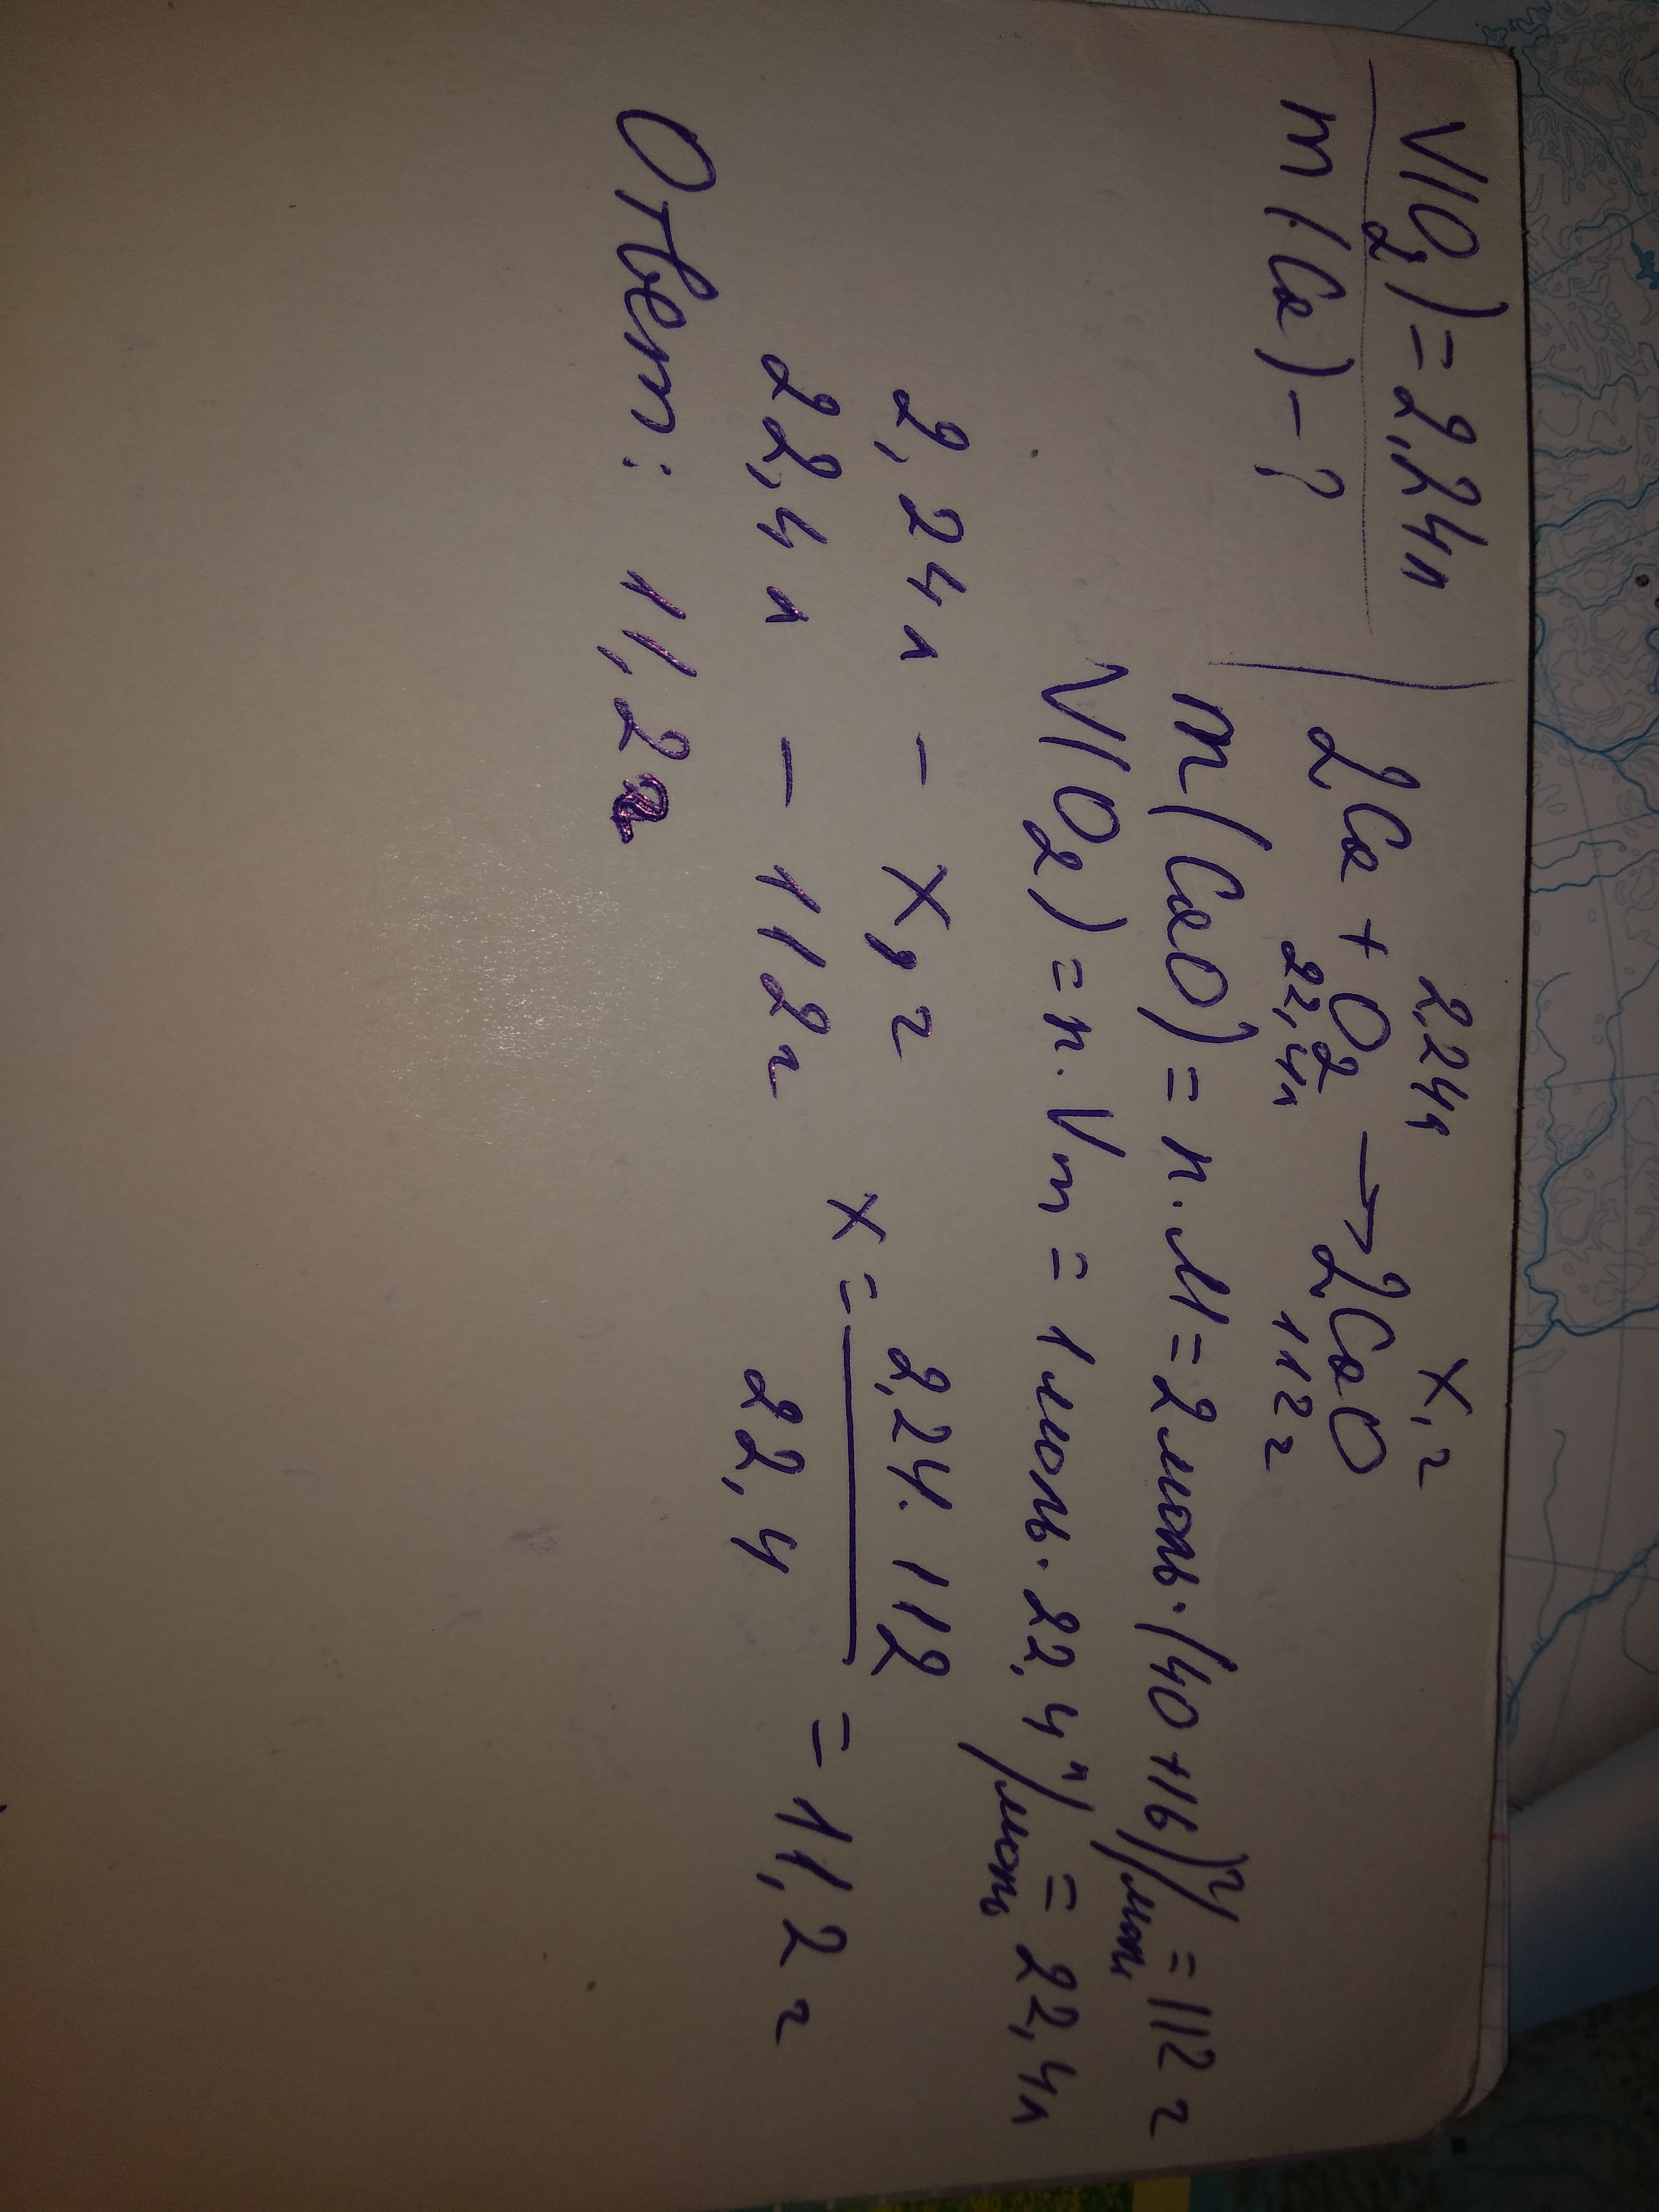 V(O₂) = 2,24л
m (Ca) - ?
2,24л x, г
2Ca + O₂ → 2CaO
22,4л 112 г
m (CaO) = n · M = 2 моль · (40 + 16) г/моль = 112 г
V(O₂) = n · Vm = 1 моль · 22,4 л/моль = 22,4л
2,24л - x, г
22,4л - 112 г
x = 2,24 · 112 / 22,4 = 11,2 г
Ответ: 11,2г